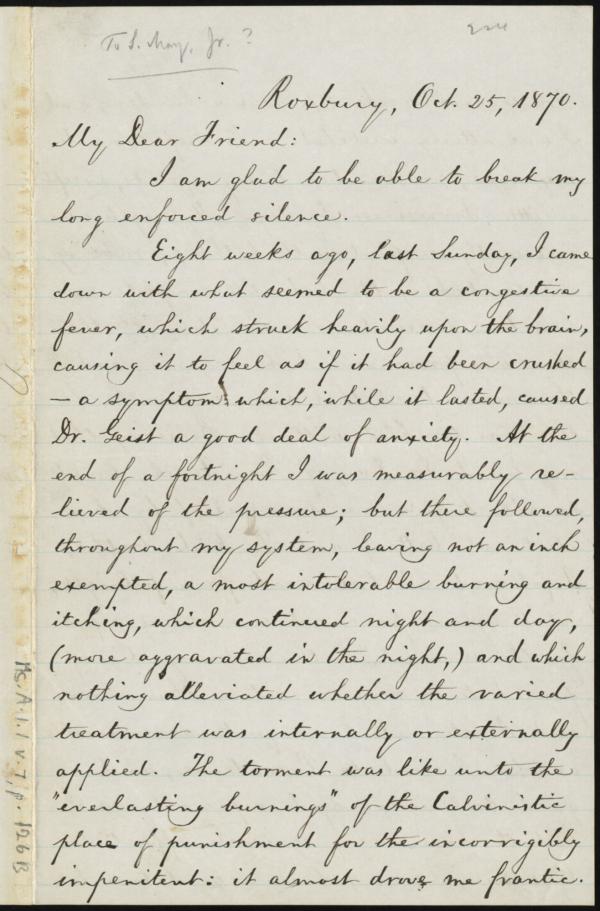 To S. May, Jr.?
Roxbury, Oct. 25, 1870.
My Dear Friend:
I am glad to be able to break my
long enforced silence.
Eight weeks ago, last Sunday, I came
down with what seemed to be a congestive
fever, which struck heavily upon the brain,
causing it to feel as if it had been crushed
— a symptom which, while it lasted, caused
Dr. Geist a good deal of anxiety. At the
end of a fortnight I was measurably re-
lieved of the pressure; but there followed,
throughout my system, leaving not an inch
exempted, a most intolerable burning and
itching, which continued night and day,
(more aggravated in the night,) and which
nothing alleviated whether the varied
treatment was internally or externally
applied. The torment was like unto the
"everlasting burnings" of the Calvinistic
place of punishment for the incorrigibly
impenitent: it almost drove me frantic.
Ms.A.1.1 v.7, p.126B